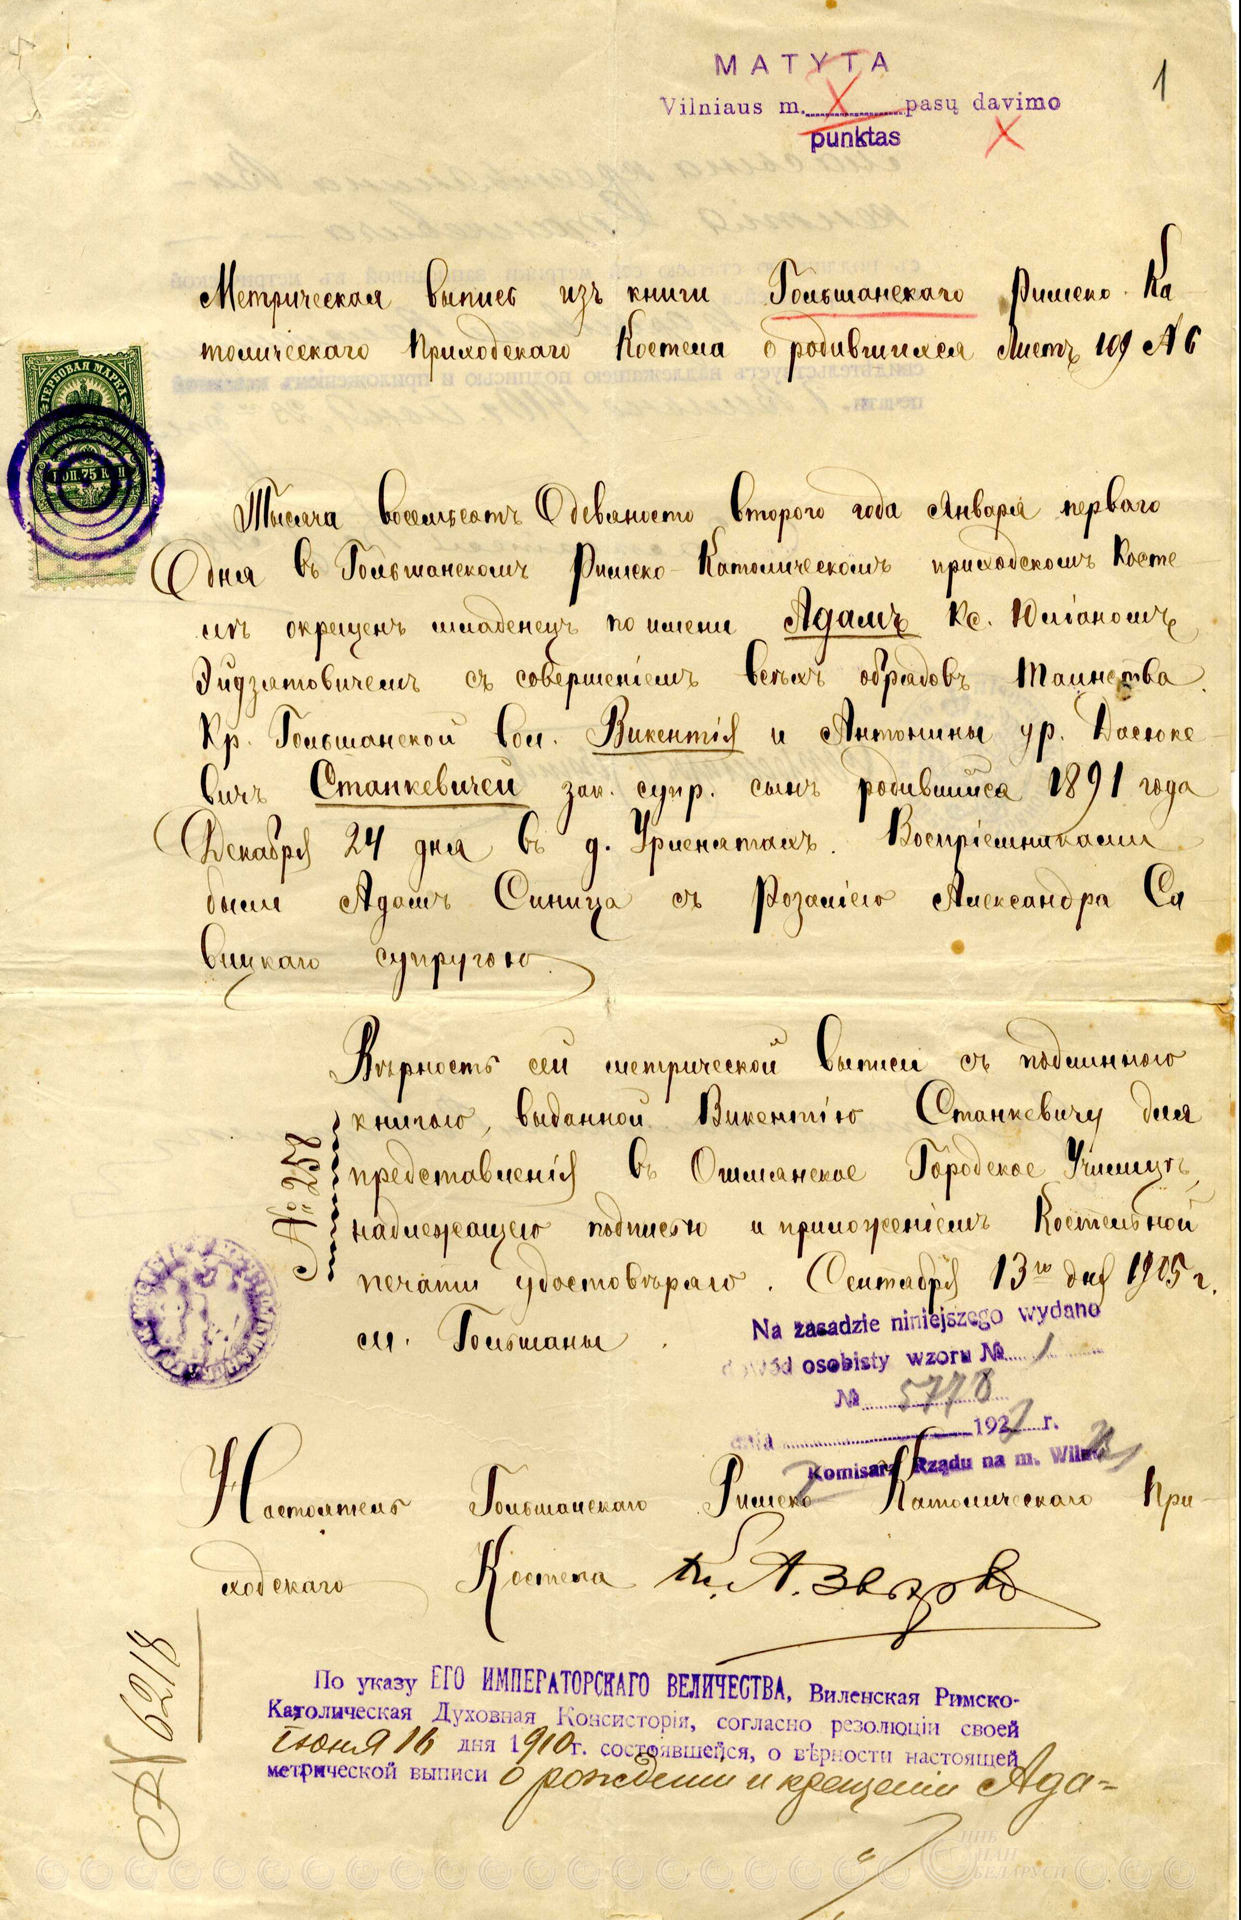 МАТУТА
1
Vilniaus m. X pasų davimo
punktas
X
Метрическая выпись изъ книги Гольшанскаго Римско-Ка
толическаго Приходскаго Костела о родившихся Листъ 109 № 6
ГЕРБОВАЯ МАРКА
КОП. 75 КОП
Тысяча восемьсотъ девяносто второго года Января перваго
дня въ Гольшанскомъ Римско-Католическомъ приходскомъ Косте
лѣ окрещенъ младенецъ по имени Адамъ Кс. Юліаномъ
Эйдзятовичемъ съ совершеніемъ всѣхъ обрядовъ Таинства.
Кр. Гольшанской вол. Викентія и Антонины ур. Дасюке-
вичъ Станкевичей зак. супр. сынъ родившійся 1891 года
Декабря 24 дня въ д. Уріенятахъ. Воспріемниками
были Адамъ Синица съ Розаліею Александра Са
вицкаго супругою
Вѣрность сей метрической выписи съ подлинною
книгою, выданной Викентію Станкевичу для
представленія въ Ошмянское Городское Училище,
надлежащею подписью и приложеніемъ Костельной
печати удостовѣряю. Сентября 13го дня 1905 г.
м. Гольшаны
№ 258
Na zasadzie niniejszego wydano
dowód osobisty wzoru № 1
№ 5778
dnia 192 r.
Komisarz Rządu na m. Wilno
Настоятель Гольшанскаго Римско Католическаго При-
ходскаго Костела Кс. А. Звѣрко
№ 6218
По указу ЕГО ИМПЕРАТОРСКАГО ВЕЛИЧЕСТВА, Виленская Римско-
Католическая Духовная Консисторія, согласно резолюціи своей
Іюня 16 дня 1910 г. состоявшейся, о вѣрности настоящей
метрической выписи о рожденіи и крещеніи Ада-
ЦНБ
НАН
БЕЛАРУСИ